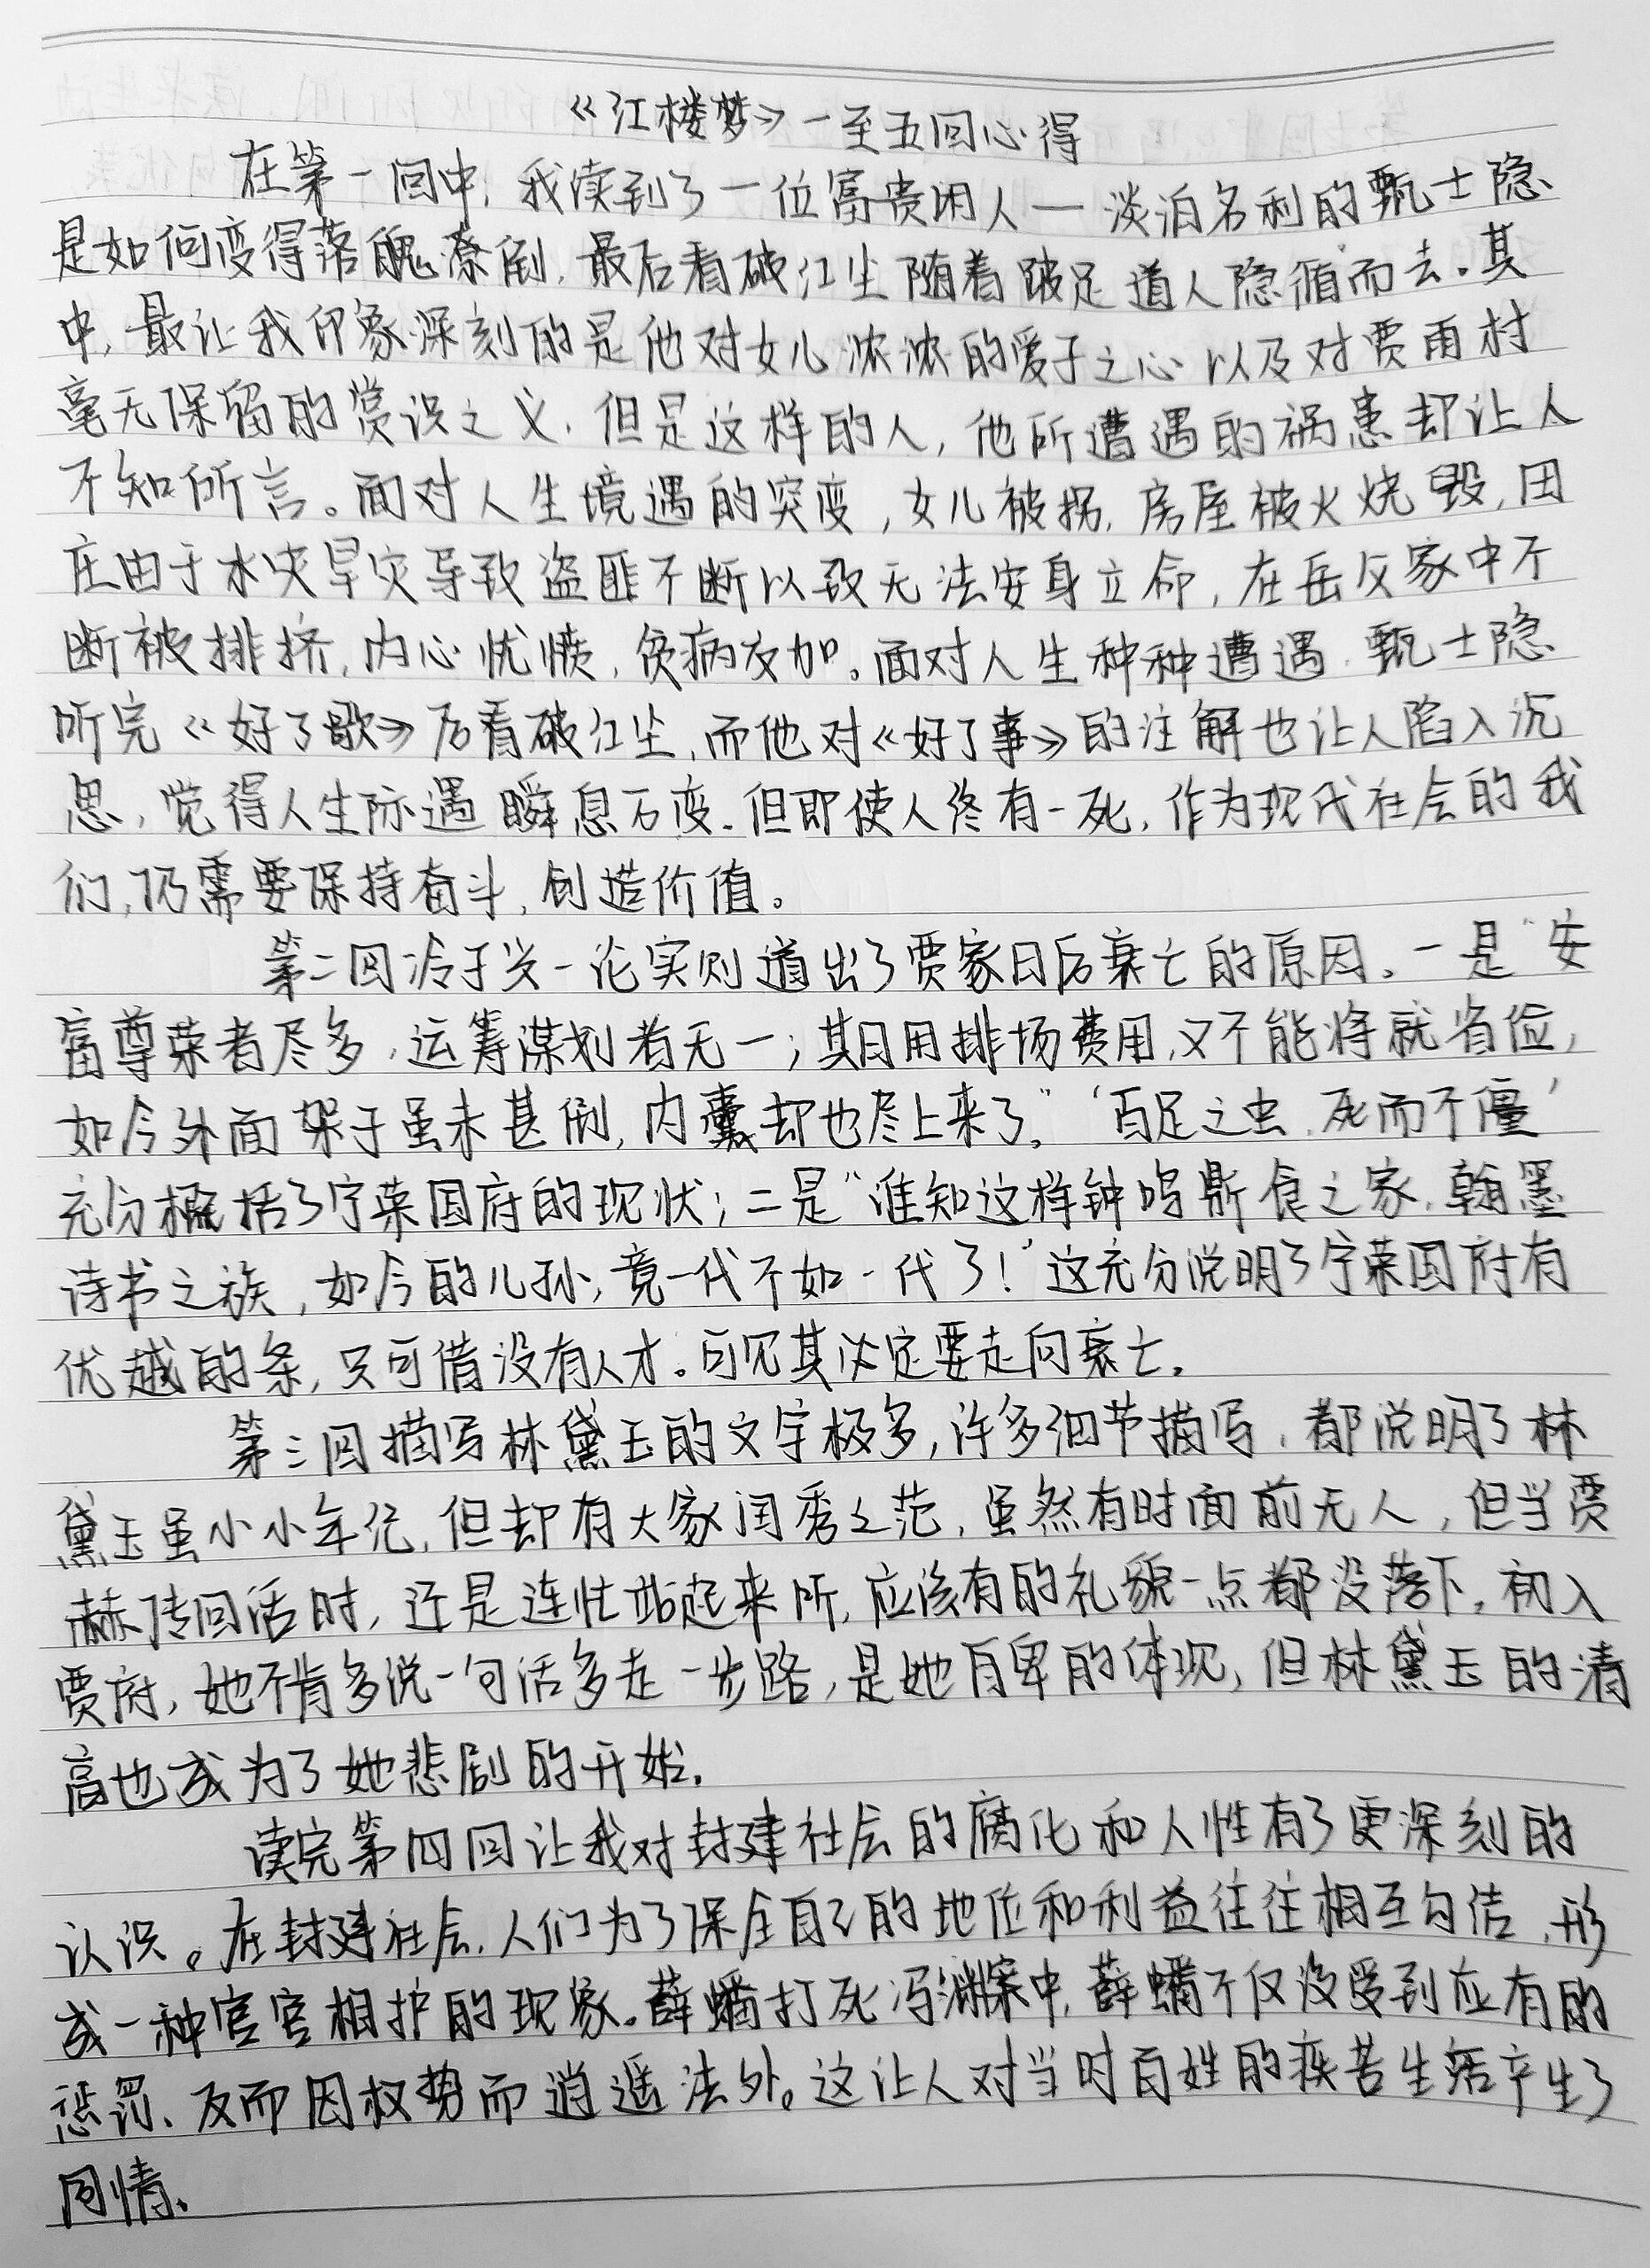 《红楼梦》一至五回心得
在第一回中，我读到了一位富贵闲人—淡泊名利的甄士隐
是如何变得落魄潦倒，最后看破红尘随着跛足道人隐循而去。其
中，最让我印象深刻的是他对女儿浓浓的爱子之心以及对贾雨村
毫无保留的赏识之义，但是这样的人，他所遭遇的祸患却让人
不知所言。面对人生境遇的突变，女儿被拐，房屋被火烧毁，田
庄由于水灾旱灾导致盗匪不断以致无法安身立命，在岳父家中不
断被排挤，内心忧愤，贫病交加。面对人生种种遭遇，甄士隐
听完《好了歌》后看破红尘，而他对《好了事》的注解也让人陷入沉
思，觉得人生际遇瞬息万变。但即使人终有一死，作为现代社会的我
们，仍需要保持奋斗，创造价值。
第二回冷子兴一论实则道出了贾家日后衰亡的原因。一是“安
富尊荣者尽多，运筹谋划者无一；其日用排场费用，又不能将就省俭，
如今外面架子虽未甚倒，内囊却也尽上来了。”‘百足之虫，死而不僵’
充分概括了宁荣国府的现状；二是“谁知这样钟鸣鼎食之家，翰墨
诗书之族，如今的儿孙，竟一代不如一代了！”这充分说明了宁荣国府有
优越的条，只可惜没有人才。可见其必定要走向衰亡。
第三回描写林黛玉的文字极多，许多细节描写，都说明了林
黛玉虽小小年纪，但却有大家闺秀之范，虽然有时面前无人，但当贾
赦传回话时，还是连忙站起来听，应该有的礼貌一点都没落下。初入
贾府，她不肯多说一句话多走一步路，是她自卑的体现，但林黛玉的清
高也成为了她悲剧的开始。
读完第四回让我对封建社会的腐化和人性有了更深刻的
认识。在封建社会，人们为了保全自己的地位和利益往往相互勾结，形
成一种官官相护的现象。薛蟠打死冯渊案中，薛蟠不仅没受到应有的
惩罚、反而因权势而逍遥法外。这让人对当时百姓的疾苦生活产生了
同情。